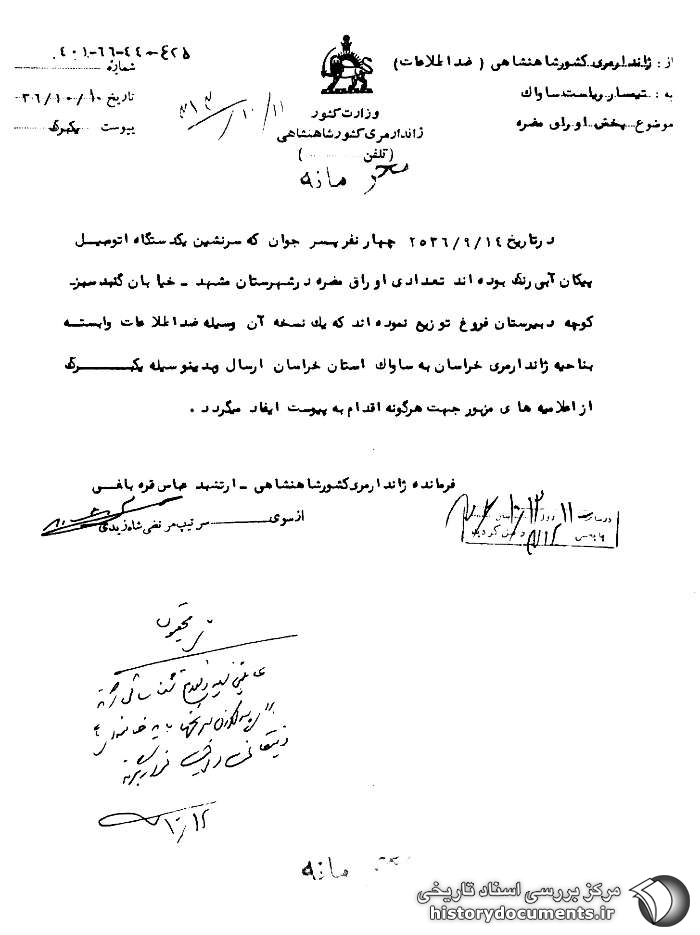 از: ژاندارمری کشور شاهنشاهی ( ضد اطلاعات )
به: تیمسار ریاست ساواک
موضوع: پخش اوراق مضره
وزارت کشور
ژاندارمری کشور شاهنشاهی
(تلفن ............ )
شماره ۴۰۱-۶۶-۴۴-۴۲۵
تاریخ ۳۶/۱۰/۱۰
پیوست یکبرگ
۱۰/۱۱
محرمانه
در تاریخ ۲۵۳۶/۹/۱۴ چهار نفر پسر جوان که سرنشین یکدستگاه اتومبیل
پیکان آبی رنگ بوده اند تعدادی اوراق مضره در شهرستان مشهد - خیابان گنبد سبز-
کوچه دبیرستان فروغ توزیع نموده اند که یک نسخه آن وسیله ضد اطلاعات وابسته
بناحیه ژاندارمری خراسان به ساواک استان خراسان ارسال وبدینوسیله یکبـــرگ
از اعلامیه های مزبور جهت هرگونه اقدام به پیوست ایفاد میگردد .
فرمانده ژاندارمری کشور شاهنشاهی - ارتشبد عباس قره باغی
از سوی سرتیپ مرتضی شاه زیدی
در ساعت ۱۱ روز
۱۰/۱۲
محرمانه
مرکز بررسی اسناد تاریخی
historydocuments.ir